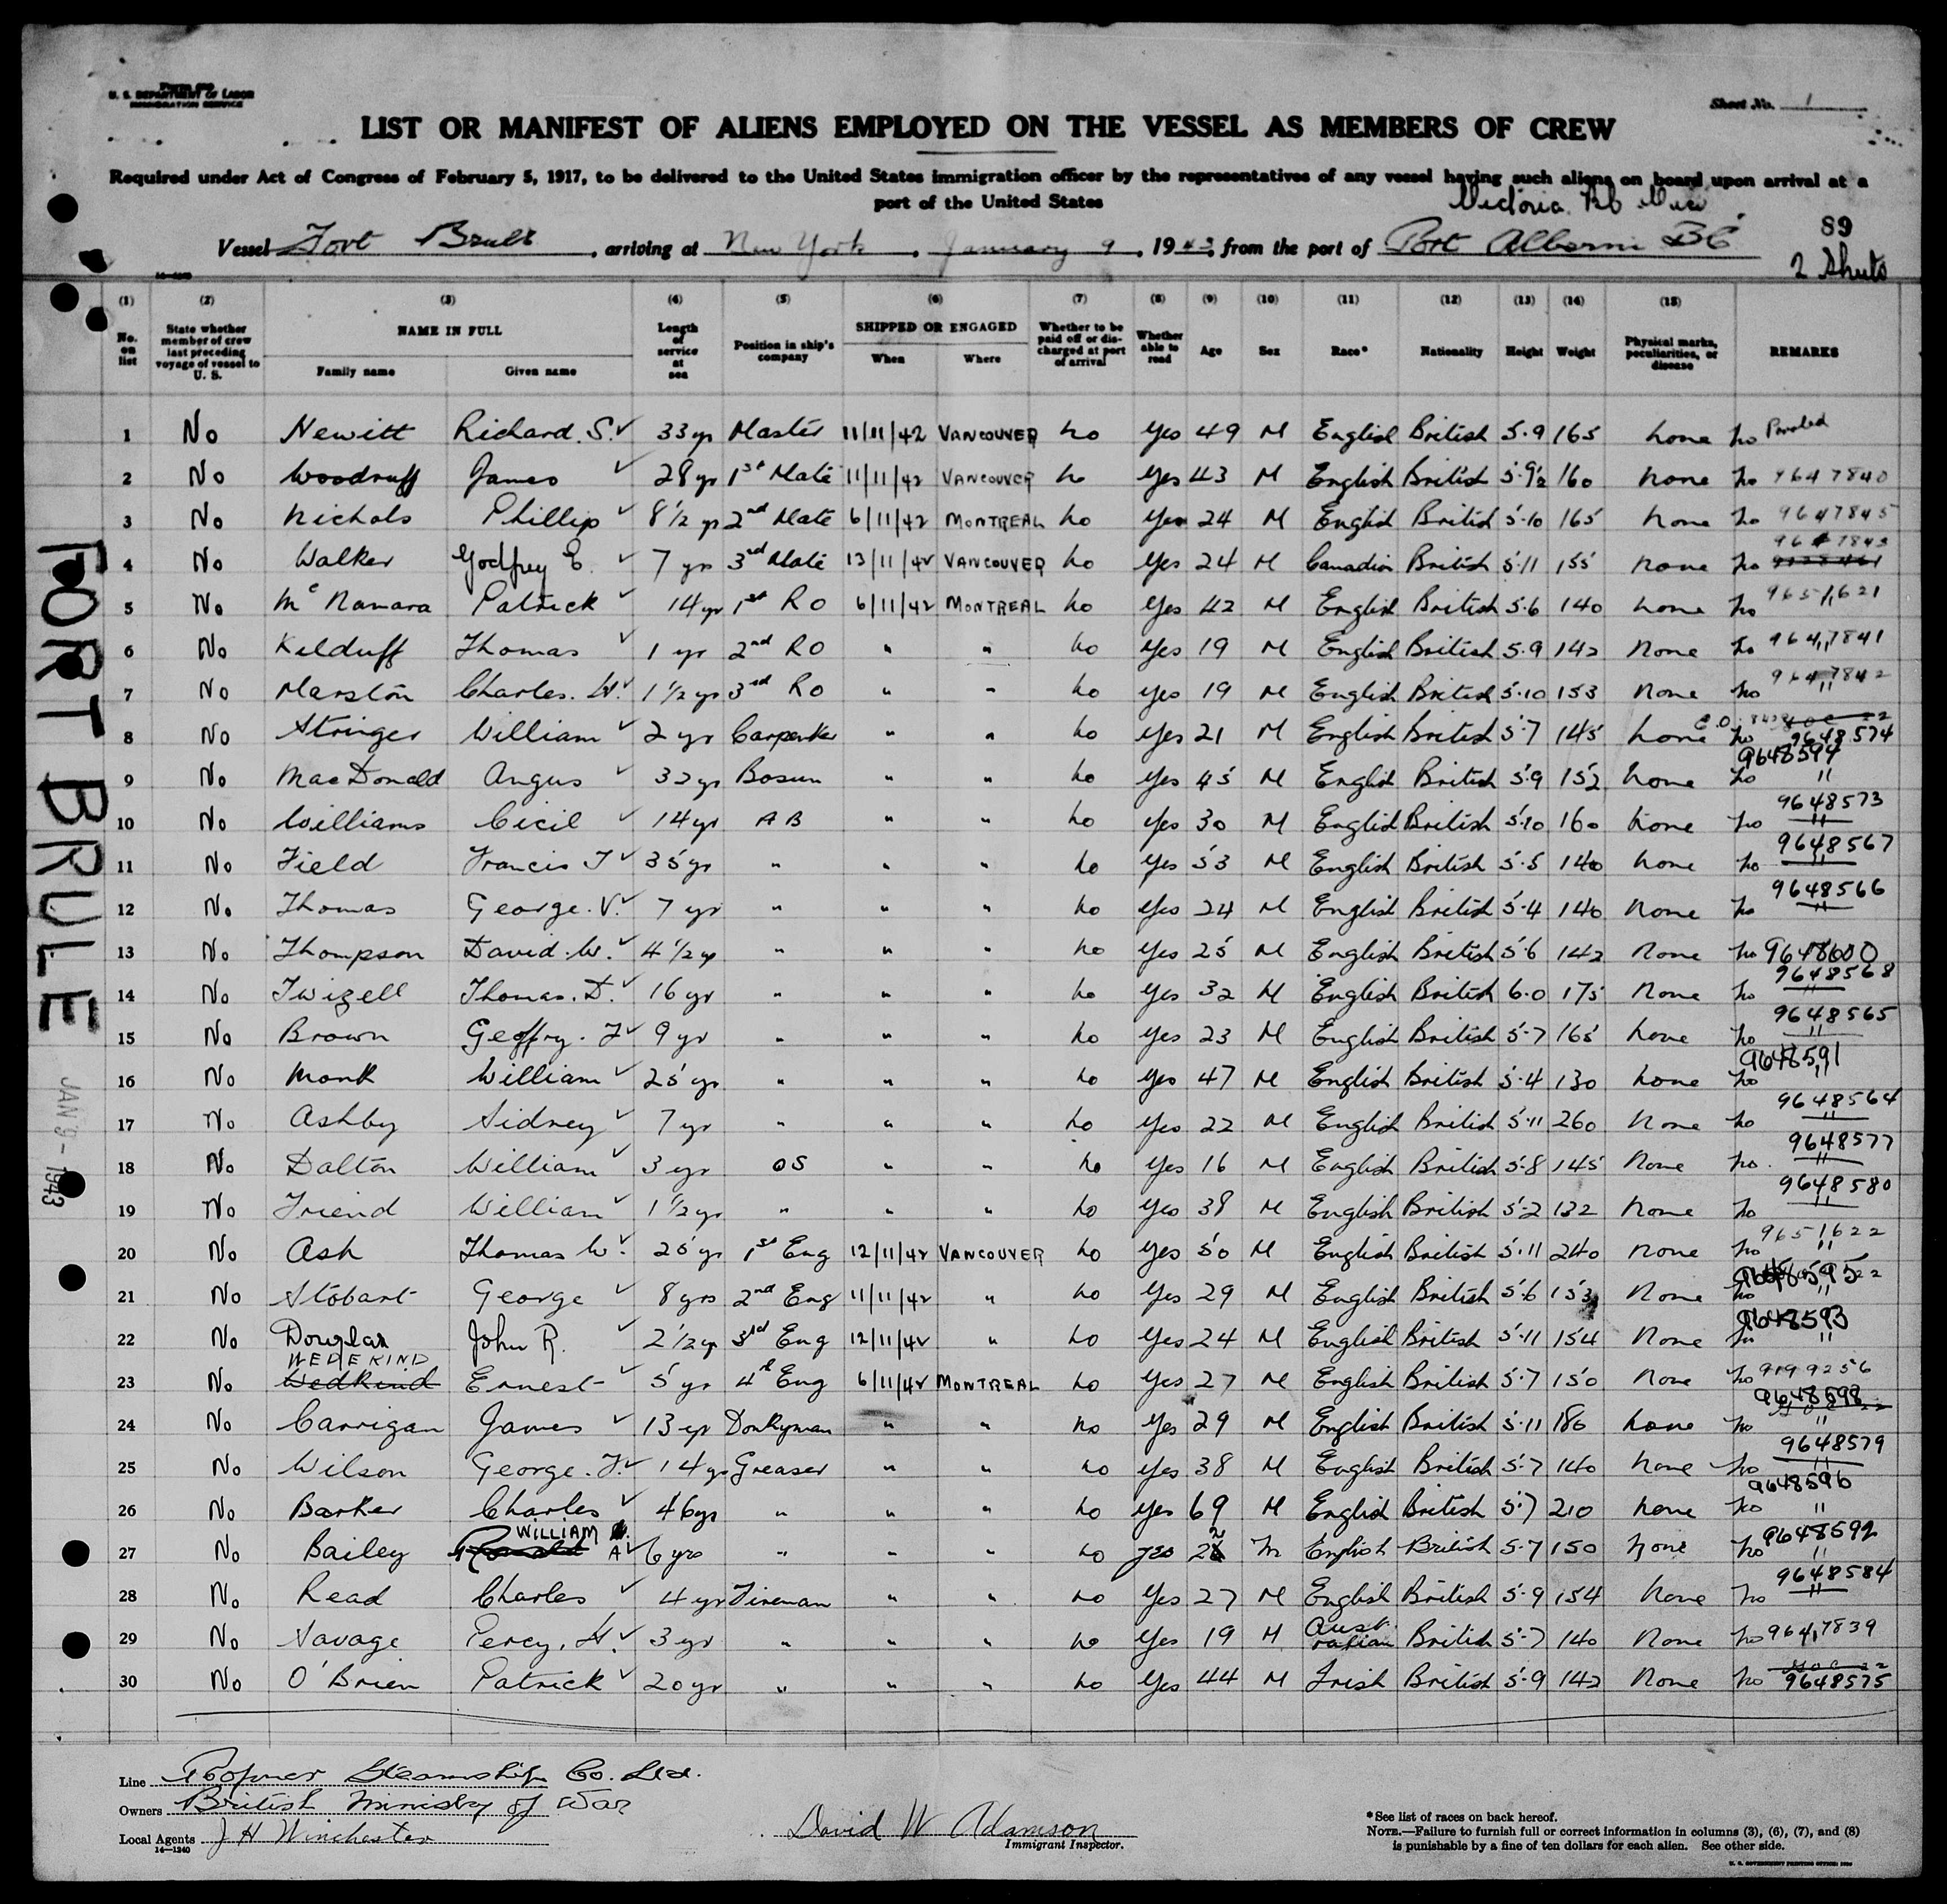 U. S. DEPARTMENT OF LABOR
IMMIGRATION SERVICE
Sheet No. 1
LIST OR MANIFEST OF ALIENS EMPLOYED ON THE VESSEL AS MEMBERS OF CREW
Required under Act of Congress of February 5, 1917, to be delivered to the United States immigration officer by the representatives of any vessel having such aliens on board upon arrival at a
port of the United States
Victoria BC
Vessel Fort Brule, arriving at New York, January 9, 1943, from the port of Port Alberni BC
89
2 Sheets
(1) (2) (3) (4) (5) (6) (7) (8) (9) (10) (11) (12) (13) (14) (15)
No. on list State whether member of crew last preceding voyage of vessel to U. S. NAME IN FULL Family name Given name Length of service at sea Position in ship's company SHIPPED OR ENGAGED When Where Whether to be paid off or discharged at port of arrival Whether able to read Age Sex Race* Nationality Height Weight Physical marks, peculiarities, or disease REMARKS
1 No Newitt Richard. S. ✓ 33 yr Master 11/11/42 VANCOUVER no Yes 49 M English British 5.9 165 none no
2 No Woodruff James ✓ 28 yr 1st Mate 11/11/42 VANCOUVER no Yes 43 M English British 5.9½ 160 none no 9647840
3 No Nichols Phillip ✓ 8½ yr 2nd Mate 6/11/42 MONTREAL no Yes 24 M English British 5.10 165 none no 9647845
4 No Walker Godfrey E. ✓ 7 yr 3rd Mate 13/11/42 VANCOUVER no Yes 24 M Canadian British 5.11 155 none no 9647843
5 No McNamara Patrick ✓ 14 yr 1st RO 6/11/42 MONTREAL no Yes 42 M English British 5.6 140 none no 9651621
6 No Kilduff Thomas ✓ 1 yr 2nd RO " " no Yes 19 M English British 5.9 142 none no 9647841
7 No Marston Charles. W. ✓ 1½ yr 3rd RO " " no Yes 19 M English British 5.10 153 none no 9647842
8 No Stringer William ✓ 2 yr Carpenter " " no Yes 21 M English British 5.7 145 none no 9648574
9 No MacDonald Angus ✓ 32 yr Bosun " " no Yes 45 M English British 5.9 152 none no 9648594
10 No Williams Cicil ✓ 14 yr AB " " no Yes 30 M English British 5.10 160 none no 9648573
11 No Field Francis J ✓ 35 yr " " " no Yes 53 M English British 5.5 140 none no 9648567
12 No Thomas George. V. ✓ 7 yr " " " no Yes 24 M English British 5.4 140 none no 9648566
13 No Thompson David. W. ✓ 4½ yr " " " no Yes 25 M English British 5.6 142 none no 9648600
14 No Twizell Thomas. D. ✓ 16 yr " " " no Yes 32 M English British 6.0 175 none no 9648568
15 No Brown Geoffry. J ✓ 9 yr " " " no Yes 23 M English British 5.7 165 none no 9648565
16 No Monk William ✓ 25 yr " " " no Yes 47 M English British 5.4 130 none no 9648591
17 No Ashby Sidney ✓ 7 yr " " " no Yes 22 M English British 5.11 260 none no 9648564
18 No Dalton William ✓ 3 yr OS " " no Yes 16 M English British 5.8 145 none no 9648577
19 No Friend William ✓ 1½ yr " " " no Yes 38 M English British 5.2 132 none no 9648580
20 No Ash Thomas W. ✓ 25 yr 1st Eng 12/11/42 VANCOUVER no Yes 50 M English British 5.11 240 none no 9651622
21 No Stobart George ✓ 8 yrs 2nd Eng 11/11/42 " no Yes 29 M English British 5.6 153 none no 9648595
22 No Douglas John R. ✓ 2½ yr 3rd Eng 12/11/42 " no Yes 24 M English British 5.11 154 none no 9648593
WEDEKIND
23 No Wedkind Ernest ✓ 5 yr 4th Eng 6/11/42 MONTREAL no Yes 27 M English British 5.7 150 none no 9199256
24 No Carrigan James ✓ 13 yr Donkyman " " no Yes 29 M English British 5.11 180 none no 9648598
25 No Wilson George. J. ✓ 14 yr Greaser " " no Yes 38 M English British 5.7 140 none no 9648579
26 No Barker Charles ✓ 46 yr " " " no Yes 69 M English British 5.7 210 none no 9648596
27 No Bailey Ronald WILLIAM A ✓ 6 yrs " " " no yes 22 M English British 5.7 150 none no 9648592
28 No Read Charles ✓ 4 yr Fireman " " no Yes 27 M English British 5.9 154 none no 9648584
29 No Navage Percy. H. ✓ 3 yr " " " no Yes 19 M Australian British 5.7 140 none no 9647839
30 No O'Brien Patrick ✓ 20 yr " " " no Yes 44 M Irish British 5.9 142 none no 9648575
FORT BRULE
JAN 9 - 1943
Line Ropner Steamship Co. Ltd.
Owners British Ministry of War
Local Agents J H Winchester
14—1240
David W Adamson
Immigrant Inspector.
*See list of races on back hereof.
NOTE.—Failure to furnish full or correct information in columns (3), (6), (7), and (8)
is punishable by a fine of ten dollars for each alien. See other side.